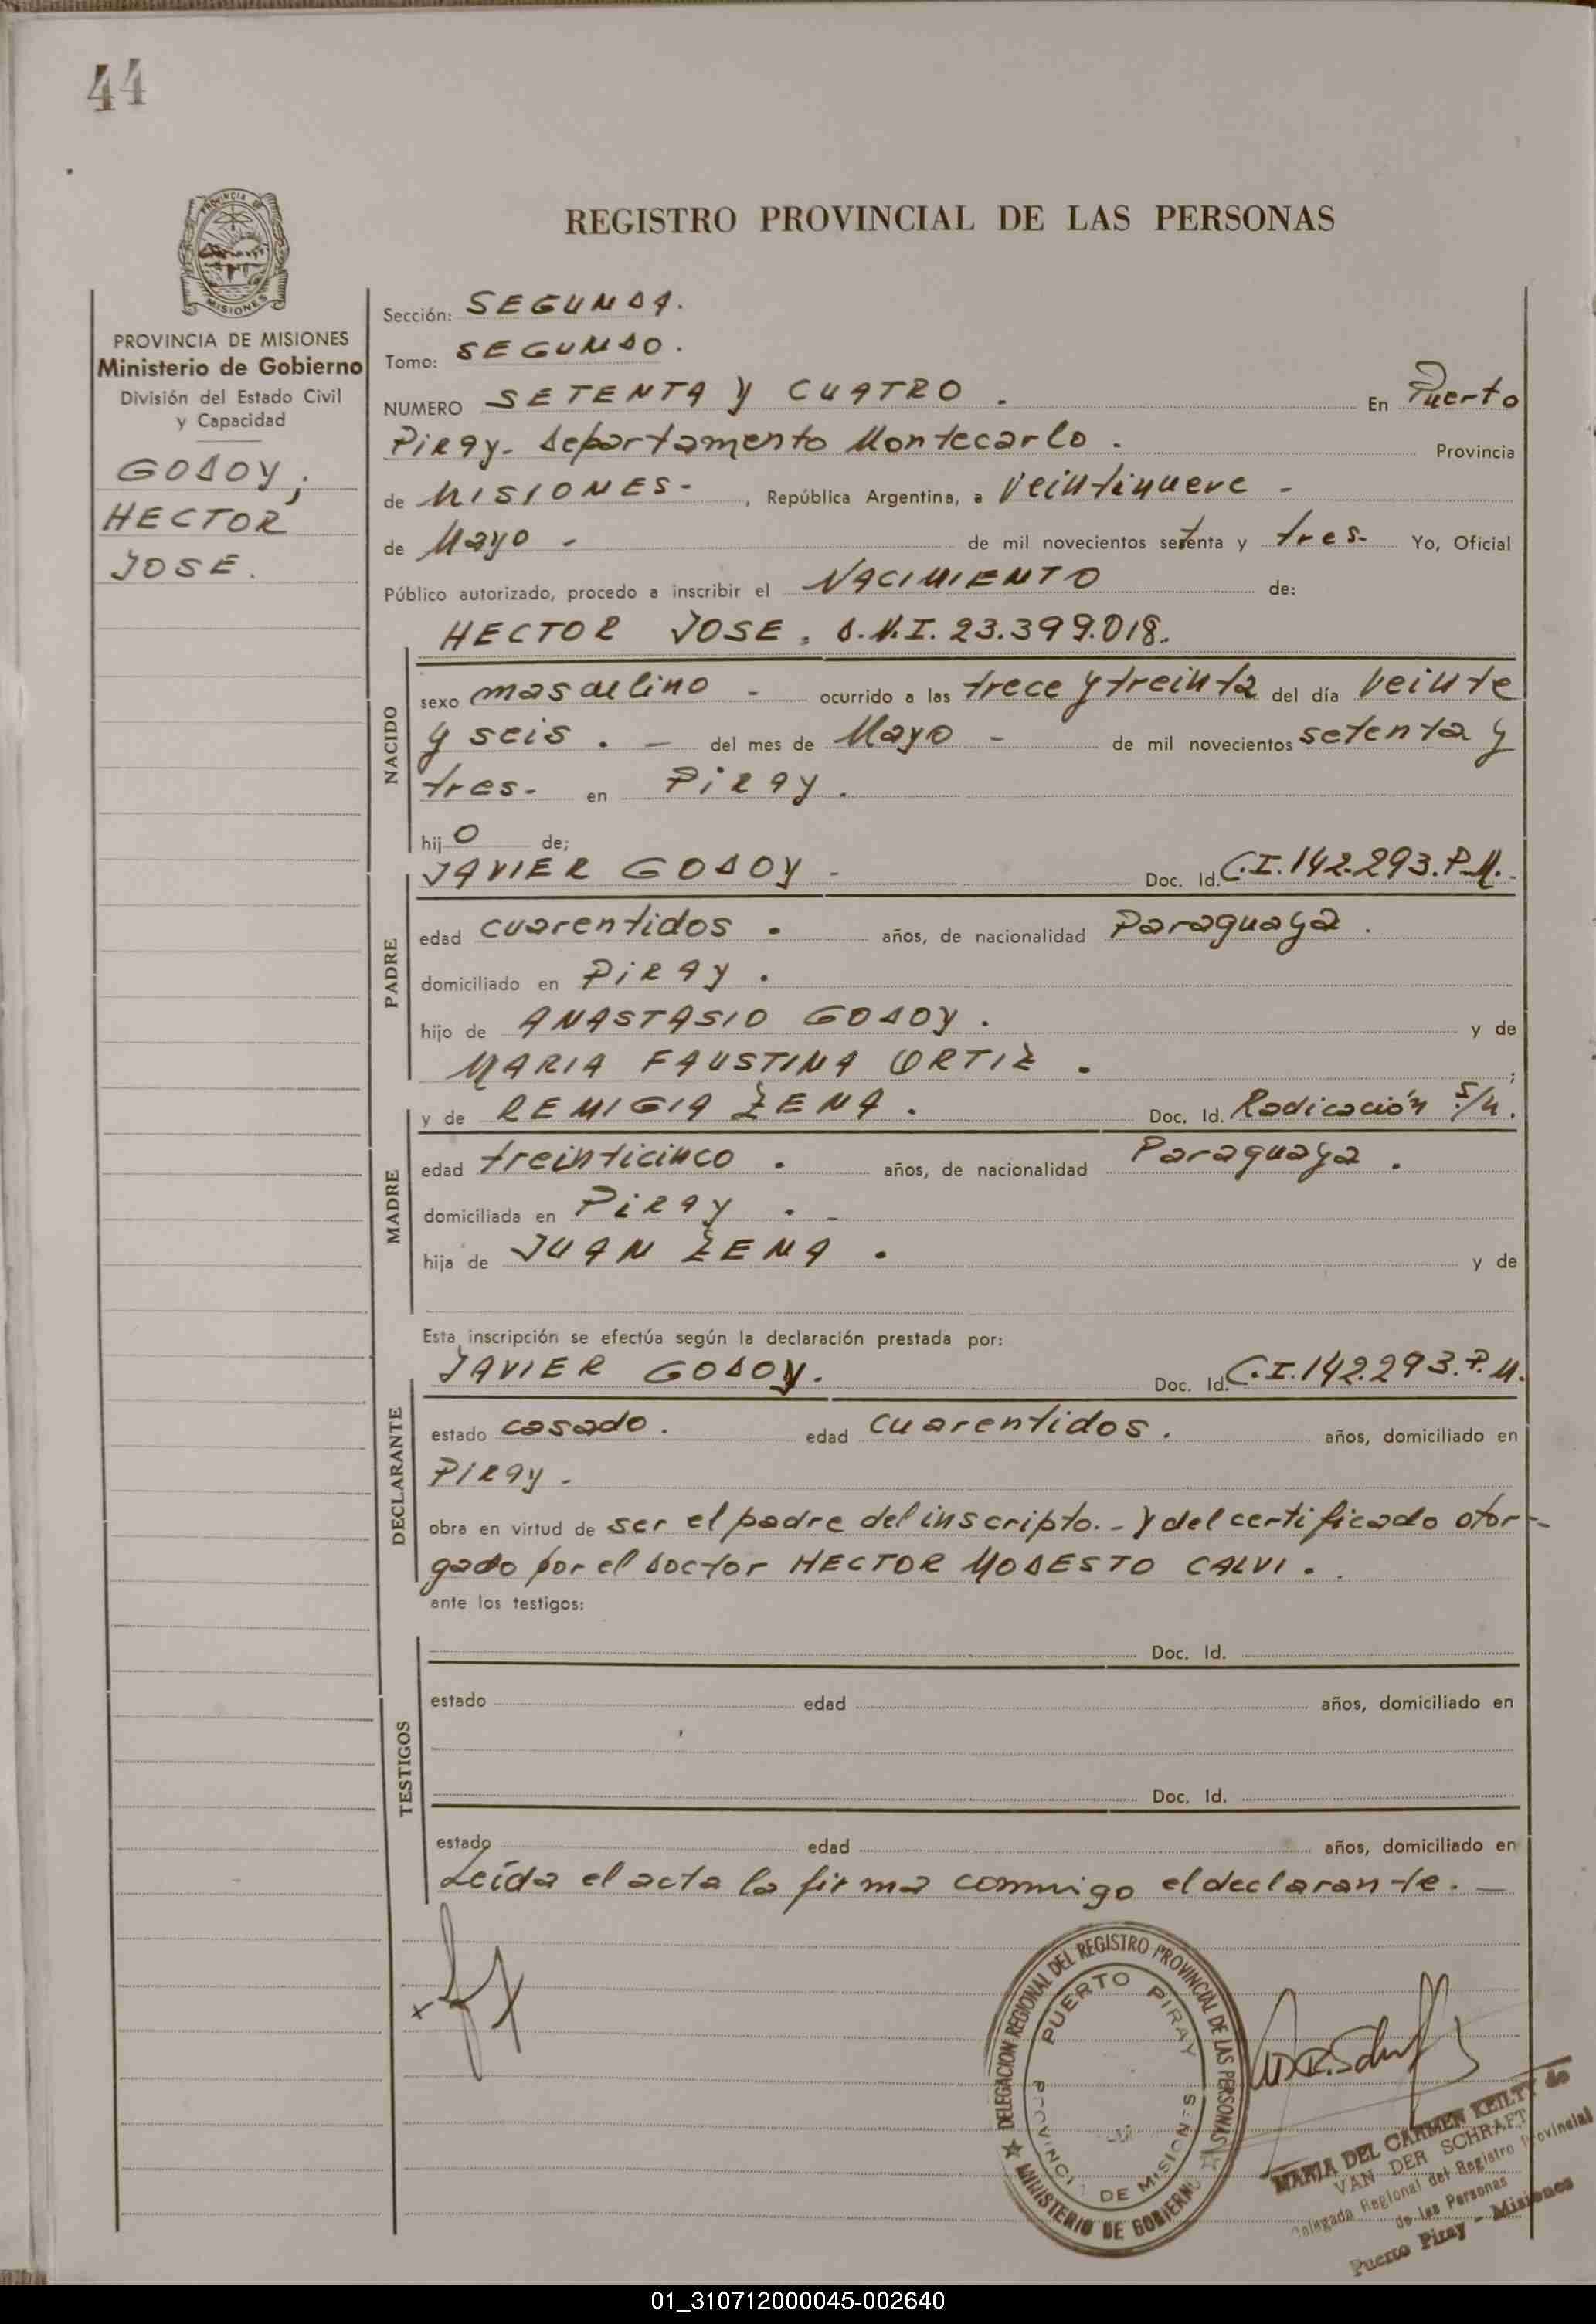 44
PROVINCIA DE
MISIONES
PROVINCIA DE MISIONES
Ministerio de Gobierno
División del Estado Civil
y Capacidad
GODOY;
HECTOR
JOSE.
REGISTRO PROVINCIAL DE LAS PERSONAS
Sección: SEGUNDA.
Tomo: SEGUNDO.
NUMERO SETENTA Y CUATRO. En Puerto
Piray. Departamento Montecarlo. Provincia
de MISIONES-, República Argentina, a Veintinueve -
de Mayo - de mil novecientos setenta y tres- Yo, Oficial
Público autorizado, procedo a inscribir el NACIMIENTO de:
HECTOR JOSE. D.N.I. 23.399.018.
NACIDO
sexo masculino - ocurrido a las trece y treinta del día Veinte
y seis. - del mes de Mayo - de mil novecientos setenta y
tres- en Piray.
hij o de;
PADRE
JAVIER GODOY - Doc. Id. C.I.142.293.P.M.-
edad cuarentidos. años, de nacionalidad Paraguaya.
domiciliado en Piray.
hijo de ANASTASIO GODOY. y de
MARIA FAUSTINA ORTIZ. ;
MADRE
y de REMIGIA ZENA. Doc. Id. Radicación S/n.
edad treinticinco. años, de nacionalidad Paraguaya.
domiciliada en Piray. -
hija de JUAN ZENA. y de
Esta inscripción se efectúa según la declaración prestada por:
DECLARANTE
JAVIER GODOY. Doc. Id. C.I.142.293.P.M.
estado casado. edad cuarentidos. años, domiciliado en
Piray.
obra en virtud de ser el padre del inscripto.- Y del certificado otor-
gado por el Doctor HECTOR MODESTO CALVI.
ante los testigos:
TESTIGOS
Doc. Id.
estado edad años, domiciliado en
Doc. Id.
estado edad años, domiciliado en
Leída el acta la firma conmigo el declarante. -
DELEGACION REGIONAL DEL REGISTRO PROVINCIAL DE LAS PERSONAS
MINISTERIO DE GOBIERNO
PUERTO PIRAY
PROVINCIA DE MISIONES
MARIA DEL CARMEN KEILTY de
VAN DER SCHRAFT
Delegada Regional del Registro Provincial
de las Personas
Puerto Piray - Misiones
01_310712000045-002640